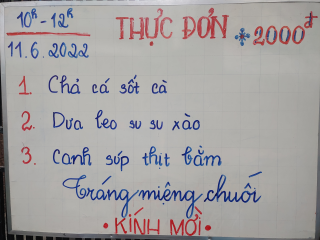 10h - 12h THỰC ĐƠN 2000đ
11.6.2022
1. Chả cá sốt cà
2. Dưa leo su su xào
3. Canh súp thịt bằm
Tráng miệng chuối
• KÍNH MỜI •